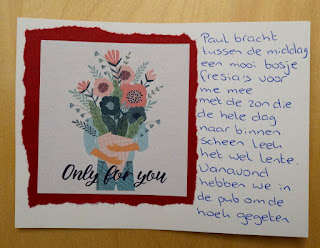 Only for you
Paul bracht
tussen de middag
een mooi bosje
fresia's voor
me mee
met de zon die
de hele dag
naar binnen
scheen leek
het wel lente.
Vanavond
hebben we in
de pub om de
hoek gegeten